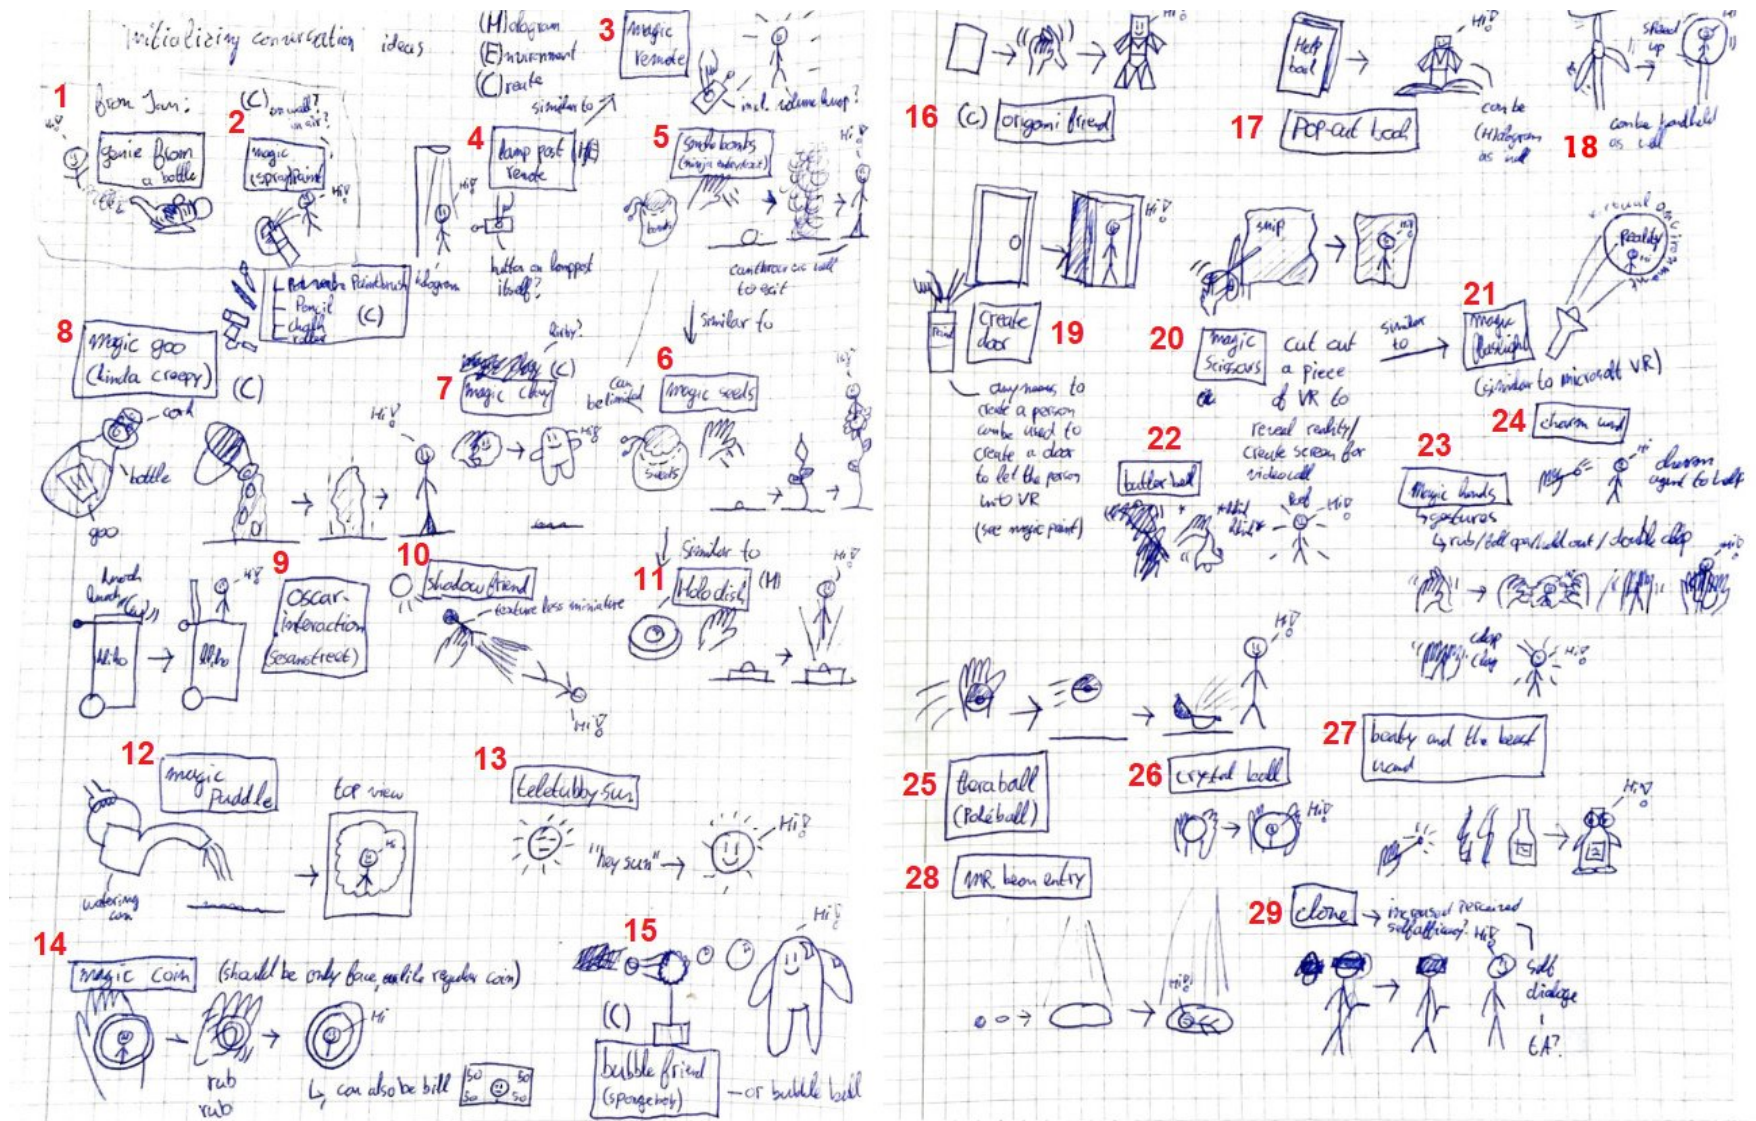 initializing conversation ideas
(H)ologram
(E)nvironment
(C)reate
similar to
3
magic
remote
incl. volume knop?
1
from Jan:
Hi!
genie from
a bottle
2
(C) on wall?
in air?
magic
(spray)paint
Hi!
Paintbrush
Pencil
chalk
roller
(C)
4
lamp post
remote
Hi!
hologram
button on lamppost
itself?
5
smoke bombs
(ninja entry/exit)
bombs
Hi!
can throw as well
to exit
similar to
6
magic seeds
can
be limited
seeds
Hi!
7
kirby?
(C)
magic clay
Hi!
8
magic goo
(kinda creepy)
(C)
cork
bottle
goo
Hi!
9
knock
knock
Kliko
Kliko
Hi!
Oscar-
interaction
(Sesamstreet)
10
shadow friend
texture less miniature
Hi!
similar to
11
Holo dish
(H)
Hi!
12
magic
puddle
watering
can
top view
Hi
13
teletubby sun
"hey sun"
Hi!
14
magic coin
(should be only face, unlike regular coin)
rub
rub
Hi
can also be bill
50 50
50 50
15
(C)
bubble friend
(spongebob)
or bubble ball
Hi!
16
(C)
origami friend
Hi!
17
Help
book
Pop-out book
Hi!
can be
(H)ologram
as well
18
speed
up
can be handheld
as well
19
Hi!
Paint
create
door
any means to
create a person
can be used to
create a door
to let the person
into VR
(see magic paint)
20
snip
Hi!
magic
scissors
cut out
a piece
of VR to
reveal reality/
create screen for
videocall
similar
to
21
magic
flashlight
virtual environment
Reality
Hi
(similar to microsoft VR)
22
butler bell
Hi!
23
magic hands
gestures
rub/fold open/hold out/double clap
Hi!
clap
clap
Hi!
24
charm wand
Hi
charm
agent to help
25
theraball
(Pokéball)
Hi!
26
crystal ball
Hi!
27
beauty and the beast
wand
Hi!
28
MR. bean entry
Hi!
29
clone
increased perceived
selfefficacy?
Hi!
self
dialoge